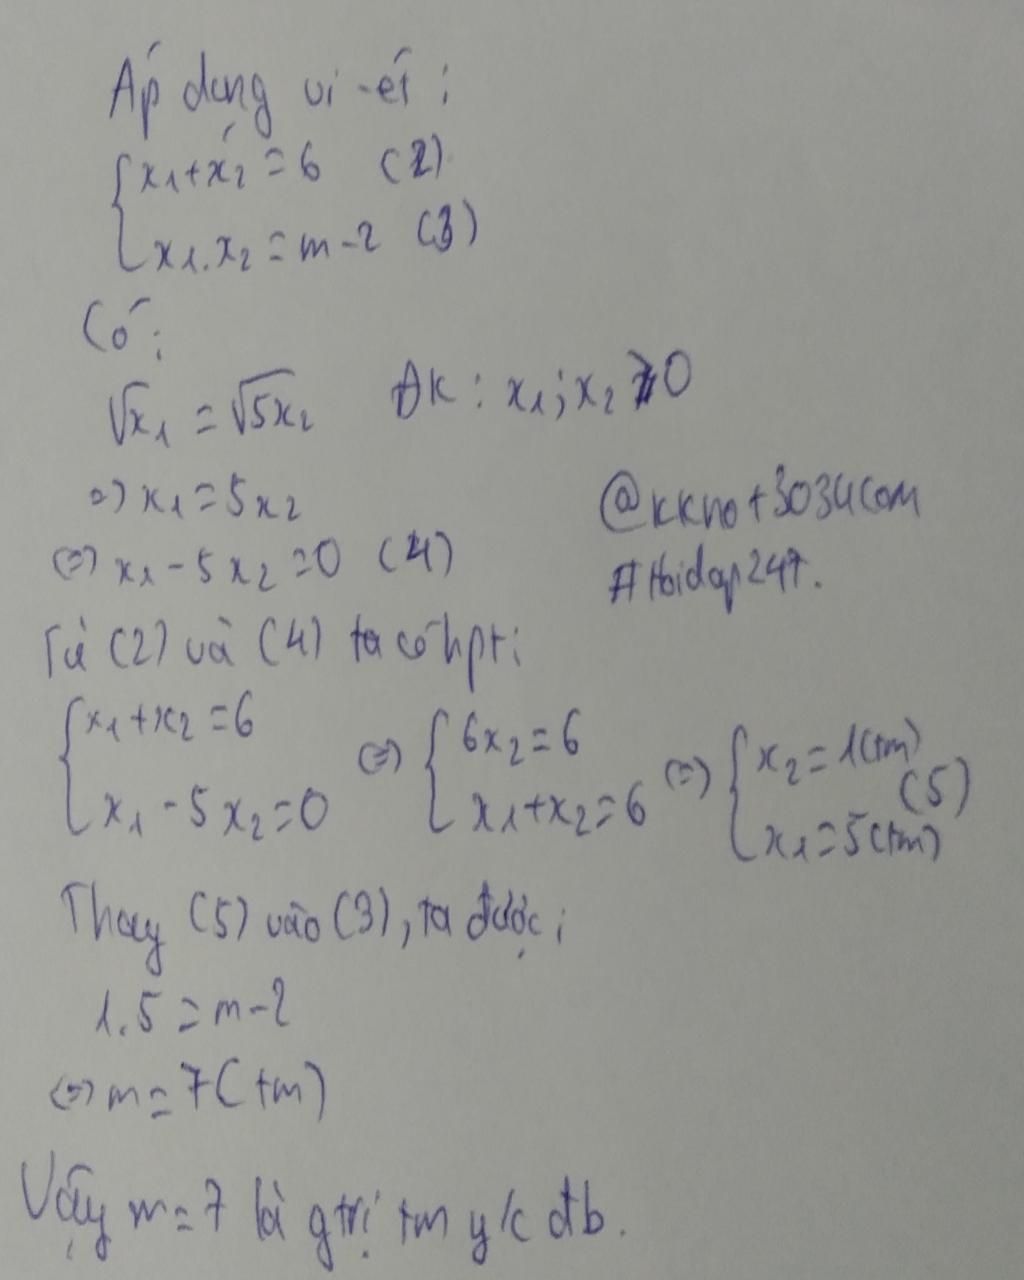 Áp dụng vi-ét:
{x₁+x₂=6 (2)
x₁.x₂=m-2 (3)
Có:
√x₁ = √5x₂ ĐK: x₁;x₂ ≥0
=> x₁=5x₂
(=) x₁-5x₂=0 (4)
@kknot3034com
#Hoidap247.
Từ (2) và (4) ta có hpt:
{x₁+x₂=6
x₁-5x₂=0
(=) {6x₂=6
x₁+x₂=6
(=) {x₂=1(tm)
x₁=5(tm)
(5)
Thay (5) vào (3), ta được:
1.5=m-2
(=) m=7(tm)
Vậy m=7 là g trị tm y/c đb.